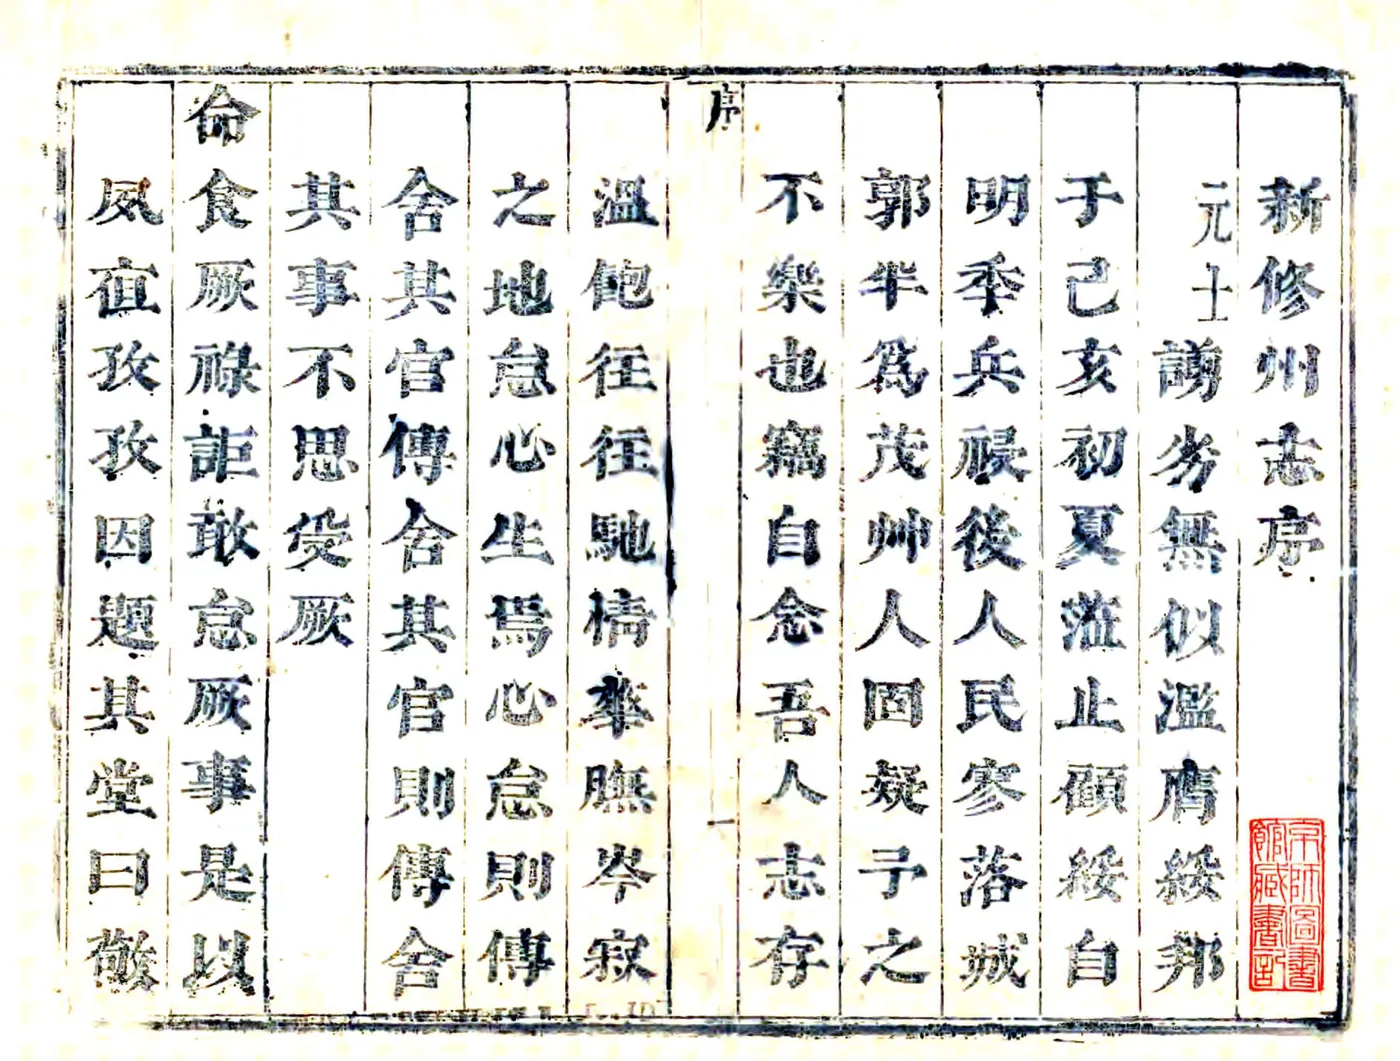 新修州志序
元士謭劣無似濫膺綏邦
于己亥初夏蒞止顧綏自
明季兵祲後人民寥落城
郭半為茂艸人固疑予之
不樂也竊自念吾人志存
序
一
溫飽往往馳情華膴岑寂
之地怠心生焉心怠則傳
舍其官傳舍其官則傳舍
其事不思受厥
命食厥祿詎敢怠厥事是以
夙夜孜孜因題其堂曰敬
京師圖書
館藏書記